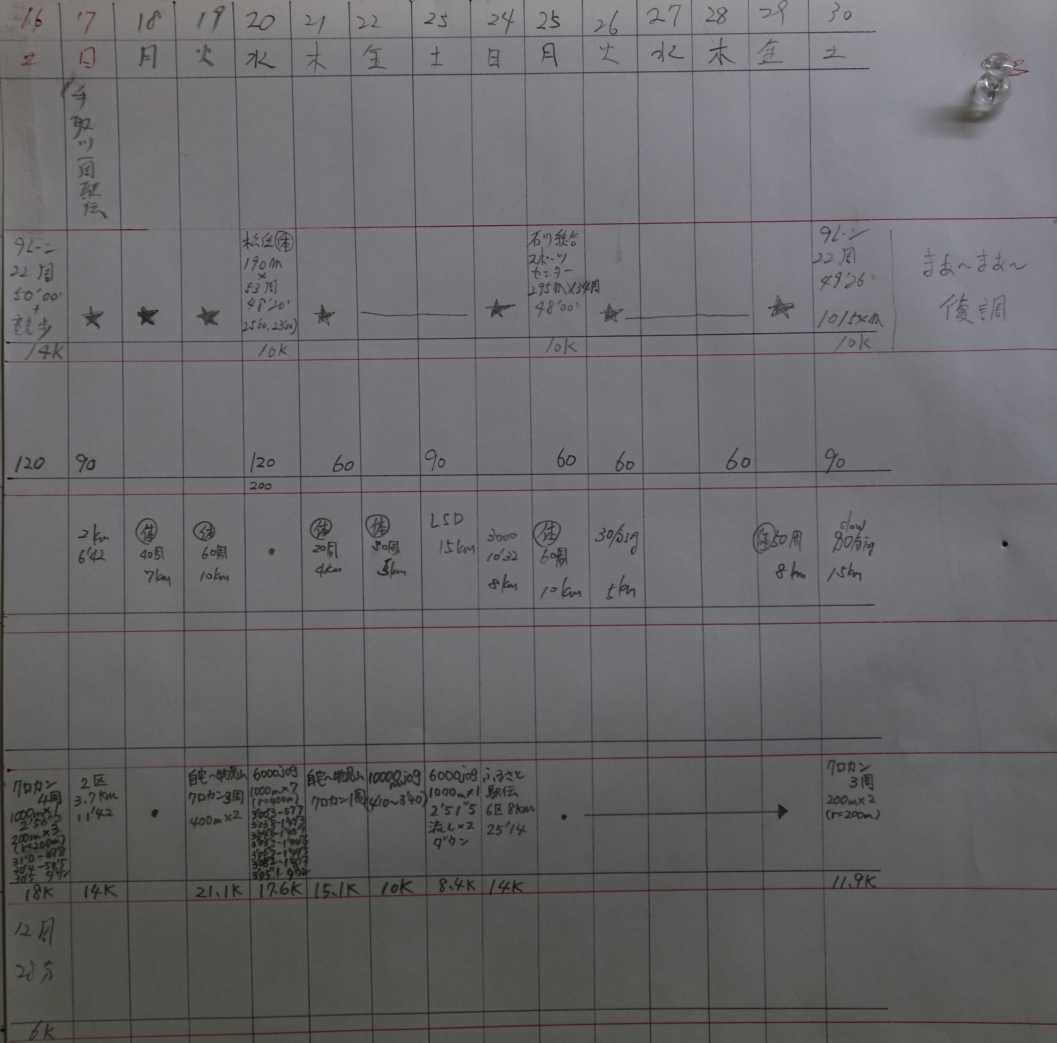 16 17 18 19 20 21 22 23 24 25 26 27 28 29 30
土 日 月 火 水 木 金 土 日 月 火 水 木 金 土
手取川一周駅伝
9レーン
22周
50'00"
+
競歩
★ ★ ★
松任体
190m
×
53周
48'20"
★
★
石川総合
スポーツ
センター
295m×34周
48'00"
★
★
9レーン
22周
49'26"
まあ〜まあ〜
復調
14K 10K 10K 10K
120 90 120 60 90 60 60 60 90
200
2km
6'42
体
40周
7km
体
60周
10km
・
体
20周
4km
体
30周
5km
LSD
15km
3000
10'32
8km
体
60周
10km
30分jog
5km
体50周
8km
slow
15km
7ロカン
4周
1000m×1
200m×3
(r=200m)
2区
3.7km
11'42
・
7ロカン3周
400m×2
6000jog
1000m×7
(r=400m)
7ロカン1周
10000jog
(4'10〜3'40)
6000jog
1000m×1
2'51"5
流し×2
ダウン
ふるさと
駅伝
6区8km
25'14
・
7ロカン
3周
200m×2
(r=200m)
18K 14K 21.1K 17.6K 15.1K 10K 8.4K 14K 11.9K
12周
28分
6K